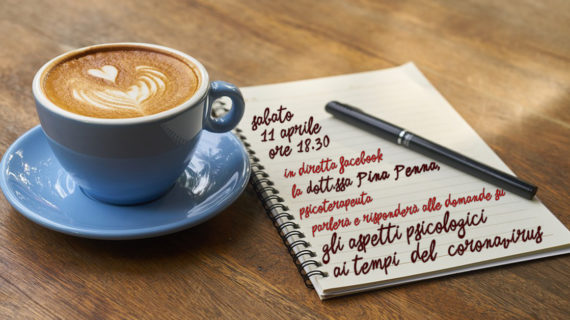 sabato
11 aprile
ore 18.30
in diretta facebook
la dott.ssa Pina Penna,
psicoterapeuta
parlerà e risponderà alle domande su
gli aspetti psicologici
ai tempi del coronavirus